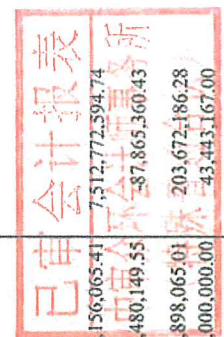 已审会计报表
,156,065.41 7,512,772,594.74
,480,149.55 -87,865,360.43
,898,065.01 203,672,186.28
,000,000.00 43,443,167.00